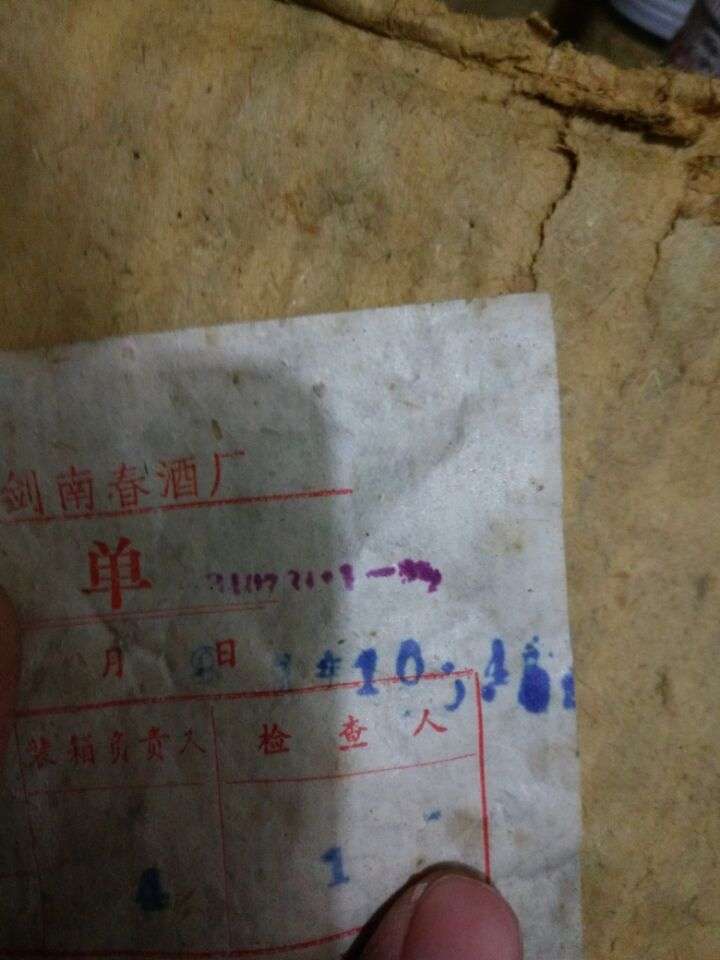 剑南春酒厂
单
月 日 1#10;4
装箱负责人 检查人
4 1